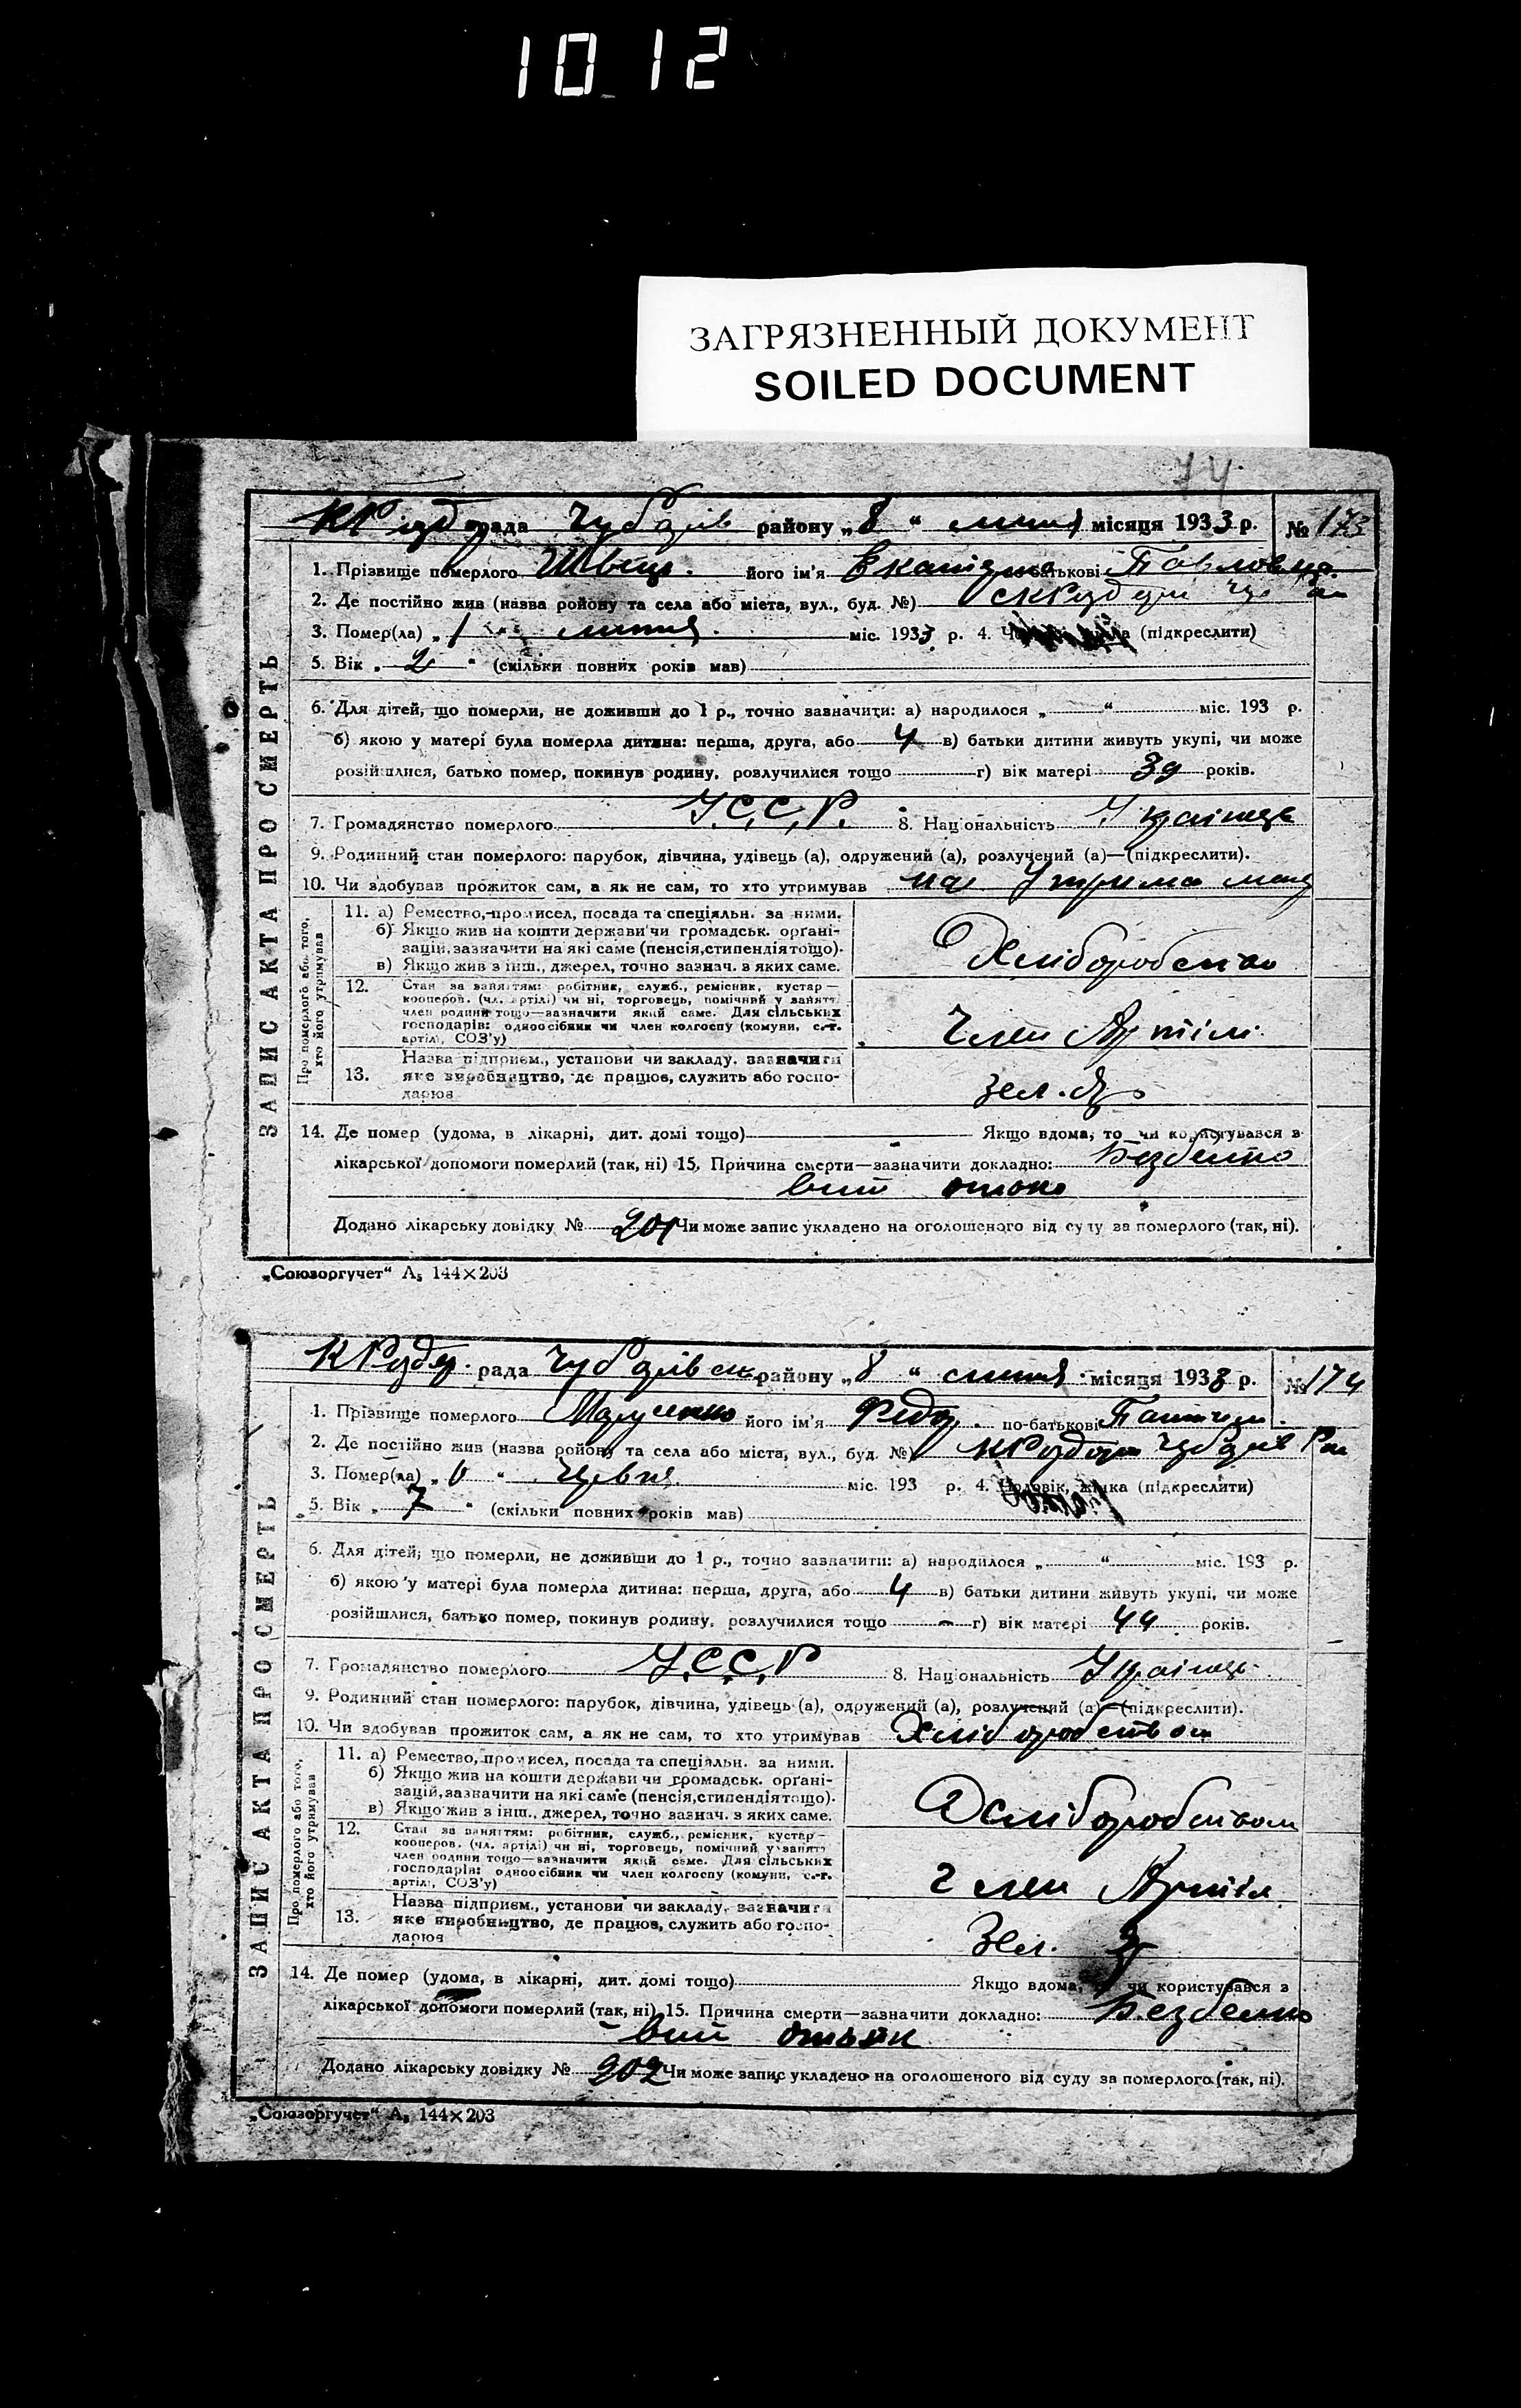 10 12
ЗАГРЯЗНЕННЫЙ ДОКУМЕНТ
SOILED DOCUMENT
74
рада району „8“ липня місяця 1933 р. № 173
1. Прізвище померлого Швець його ім'я по-батькові Павловна
2. Де постійно жив (назва району та села або міста, вул., буд. №)
3. Помер(ла) „1“ липня міс. 1933 р. 4. (підкреслити)
5. Вік „2“ (скільки повних років мав)
6. Для дітей, що померли, не доживши до 1 р., точно зазначити: а) народилося „ “ міс. 193 р.
б) якою у матері була померла дитина: перша, друга, або 4 в) батьки дитини живуть укупі, чи може
розійшлися, батько помер, покинув родину, розлучилися тощо г) вік матері 39 років.
7. Громадянство померлого У.С.С.Р. 8. Національність
9. Родинний стан померлого: парубок, дівчина, удівець (а), одружений (а), розлучений (а)—(підкреслити).
10. Чи здобував прожиток сам, а як не сам, то хто утримував на
ЗАПИС АКТА ПРО СМЕРТЬ
Про померлого або того, хто його утримував
11. а) Ремество, промисел, посада та спеціяльн. за ними.
б) Якщо жив на кошти держави чи громадськ. органі-
зацій, зазначити на які саме (пенсія, стипендія тощо).
в) Якщо жив з інш., джерел, точно зазнач. з яких саме.
12. Стан за заняттям: робітник, служб., ремісник, кустар—
кооперов. (чл. артілі) чи ні, торговець, помічний у занятт.
член родини тощо—зазначити який саме. Для сільських
господарів: одноосібник чи член колгоспу (комуни, с.-г.
артілі, СОЗ'у)
Член Артілі
13. Назва підприєм., установи чи закладу, зазначити
яке виробництво, де працюв, служить або госпо-
дарюв
14. Де помер (удома, в лікарні, дит. домі тощо) Якщо вдома, то чи користувався з
лікарської допомоги померлий (так, ні) 15. Причина смерти—зазначити докладно:
Додано лікарську довідку № 201 Чи може запис укладено на оголошеного від суду за померлого (так, ні).
„Союзоргучет“ А₅ 144×203
рада району „8“ липня місяця 1933 р. № 174
1. Прізвище померлого його ім'я Федор по-батькові
2. Де постійно жив (назва району та села або міста, вул., буд. №)
3. Помер(ла) міс. 193 р. 4. Чоловік, жінка (підкреслити)
5. Вік „7“ (скільки повних років мав)
6. Для дітей, що померли, не доживши до 1 р., точно зазначити: а) народилося „ “ міс. 193 р.
б) якою у матері була померла дитина: перша, друга, або 4 в) батьки дитини живуть укупі, чи може
розійшлися, батько помер, покинув родину, розлучилися тощо — г) вік матері 44 років.
7. Громадянство померлого У.С.С.Р 8. Національність
9. Родинний стан померлого: парубок, дівчина, удівець (а), одружений (а), розлучений (а)—(підкреслити).
10. Чи здобував прожиток сам, а як не сам, то хто утримував Хліборобством
ЗАПИС АКТА ПРО СМЕРТЬ
Про померлого або того, хто його утримував
11. а) Ремество, промисел, посада та спеціяльн. за ними.
б) Якщо жив на кошти держави чи громадськ. органі-
зацій, зазначити на які саме (пенсія, стипендія тощо).
в) Якщо жив з інш., джерел, точно зазнач. з яких саме.
Хліборобством
12. Стан за заняттям: робітник, служб., ремісник, кустар—
кооперов. (чл. артілі) чи ні, торговець, помічний у занятт.
член родини тощо—зазначити який саме. Для сільських
господарів: одноосібник чи член колгоспу (комуни, с.-г.
артілі, СОЗ'у)
Член
13. Назва підприєм., установи чи закладу, зазначити
яке виробництво, де працюв, служить або госпо-
дарюв
14. Де помер (удома, в лікарні, дит. домі тощо) Якщо вдома, чи користувався з
лікарської допомоги померлий (так, ні) 15. Причина смерти—зазначити докладно:
Додано лікарську довідку № 202 Чи може запис укладено на оголошеного від суду за померлого (так, ні).
„Союзоргучет“ А₅ 144×203